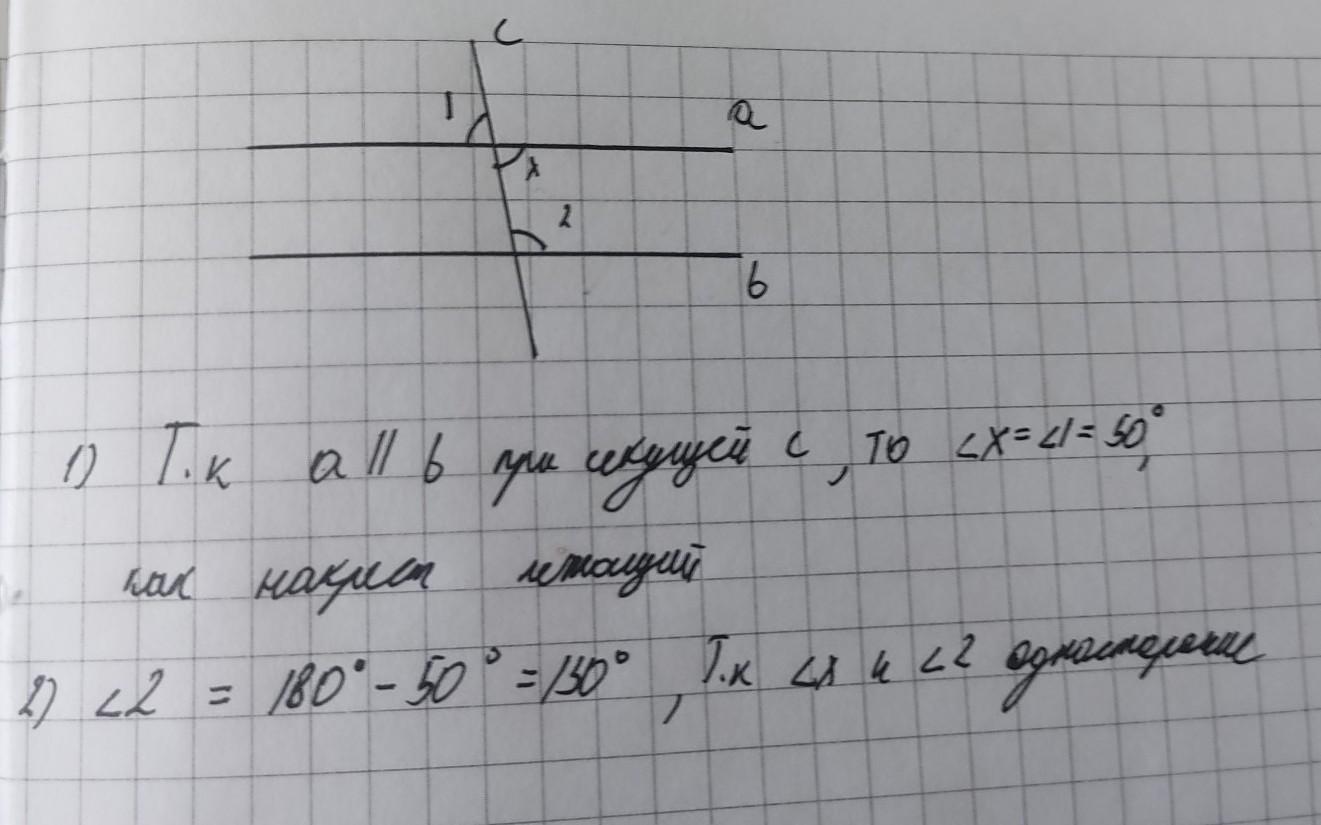 c
1
a
x
2
b
1) Т.к a || b при секущей c, то ∠x=∠1=50°,
как накрест лежащий
2) ∠2 = 180° - 50° = 130°, Т.к ∠x и ∠2 односторонние